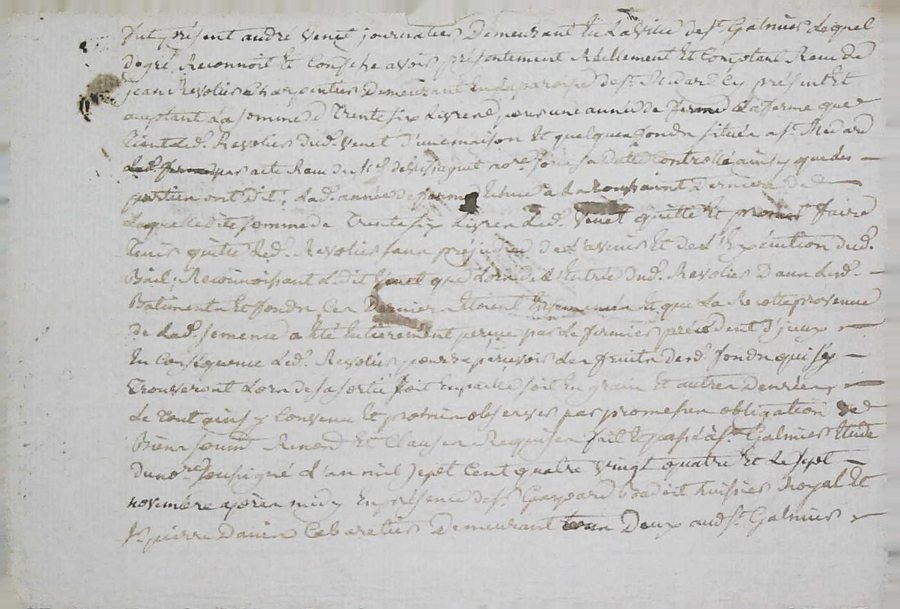 fut présent andré Venet journalier Demeurant En La Ville de st. Galmier Lequel
de gré Reconnoit Et Confesse avoir présentement Réellement Et Comptant Recu de
jean Revolier charpentier Demeurant En La paroisse de st. Medard Cy présent Et
acceptant La somme de Trente six Livres pour une année de ferme La ferme que
tient Led. Revolier dud. Venet d'une maison Et quelques fondn située a st. Medard
par acte Recu du not.re son sa Date Controllé ainsy que Les
parties ont Dit, Lad. année de ferme Echue a La toussaint Derniere De
Laquelle dite somme de Trente six Livres Led. Venet quitte Et promet faire
tenir quitte Led. Revolier sans préjudice de L'avenir Et de L'Exécution dud.
Bail, Reconnoissant Ledit Venet que Lors de L'entrée dud. Revolier Dans Lesd.
Batiments Et fondn Ces Derniers étoient Ensemencés Et que La Recolte provenue
de Lad. semence a été Entierement perçue par Le fermier précédent D'iceux
En Conséquence Led. Revolier pourra percevoir Les fruitn desd. fondn qui s'y
Trouveront Lors de sa sortie soit En paille soit En grain Et autres Denrées,
Le tout ainsy Convenu Et promis observer par promesses obligation de
Biens soum. Renon. Et Clauses Requises fait Et passé a st. Galmier Etude
du no.re soussigné L'an mil sept Cent quatre vingt quatre Et Le sept
novembre après midy En présence de sr. Gaspard huissier Royal Et
sr. pierre Cabaretier Demeurant tous Deux aud. st. Galmier